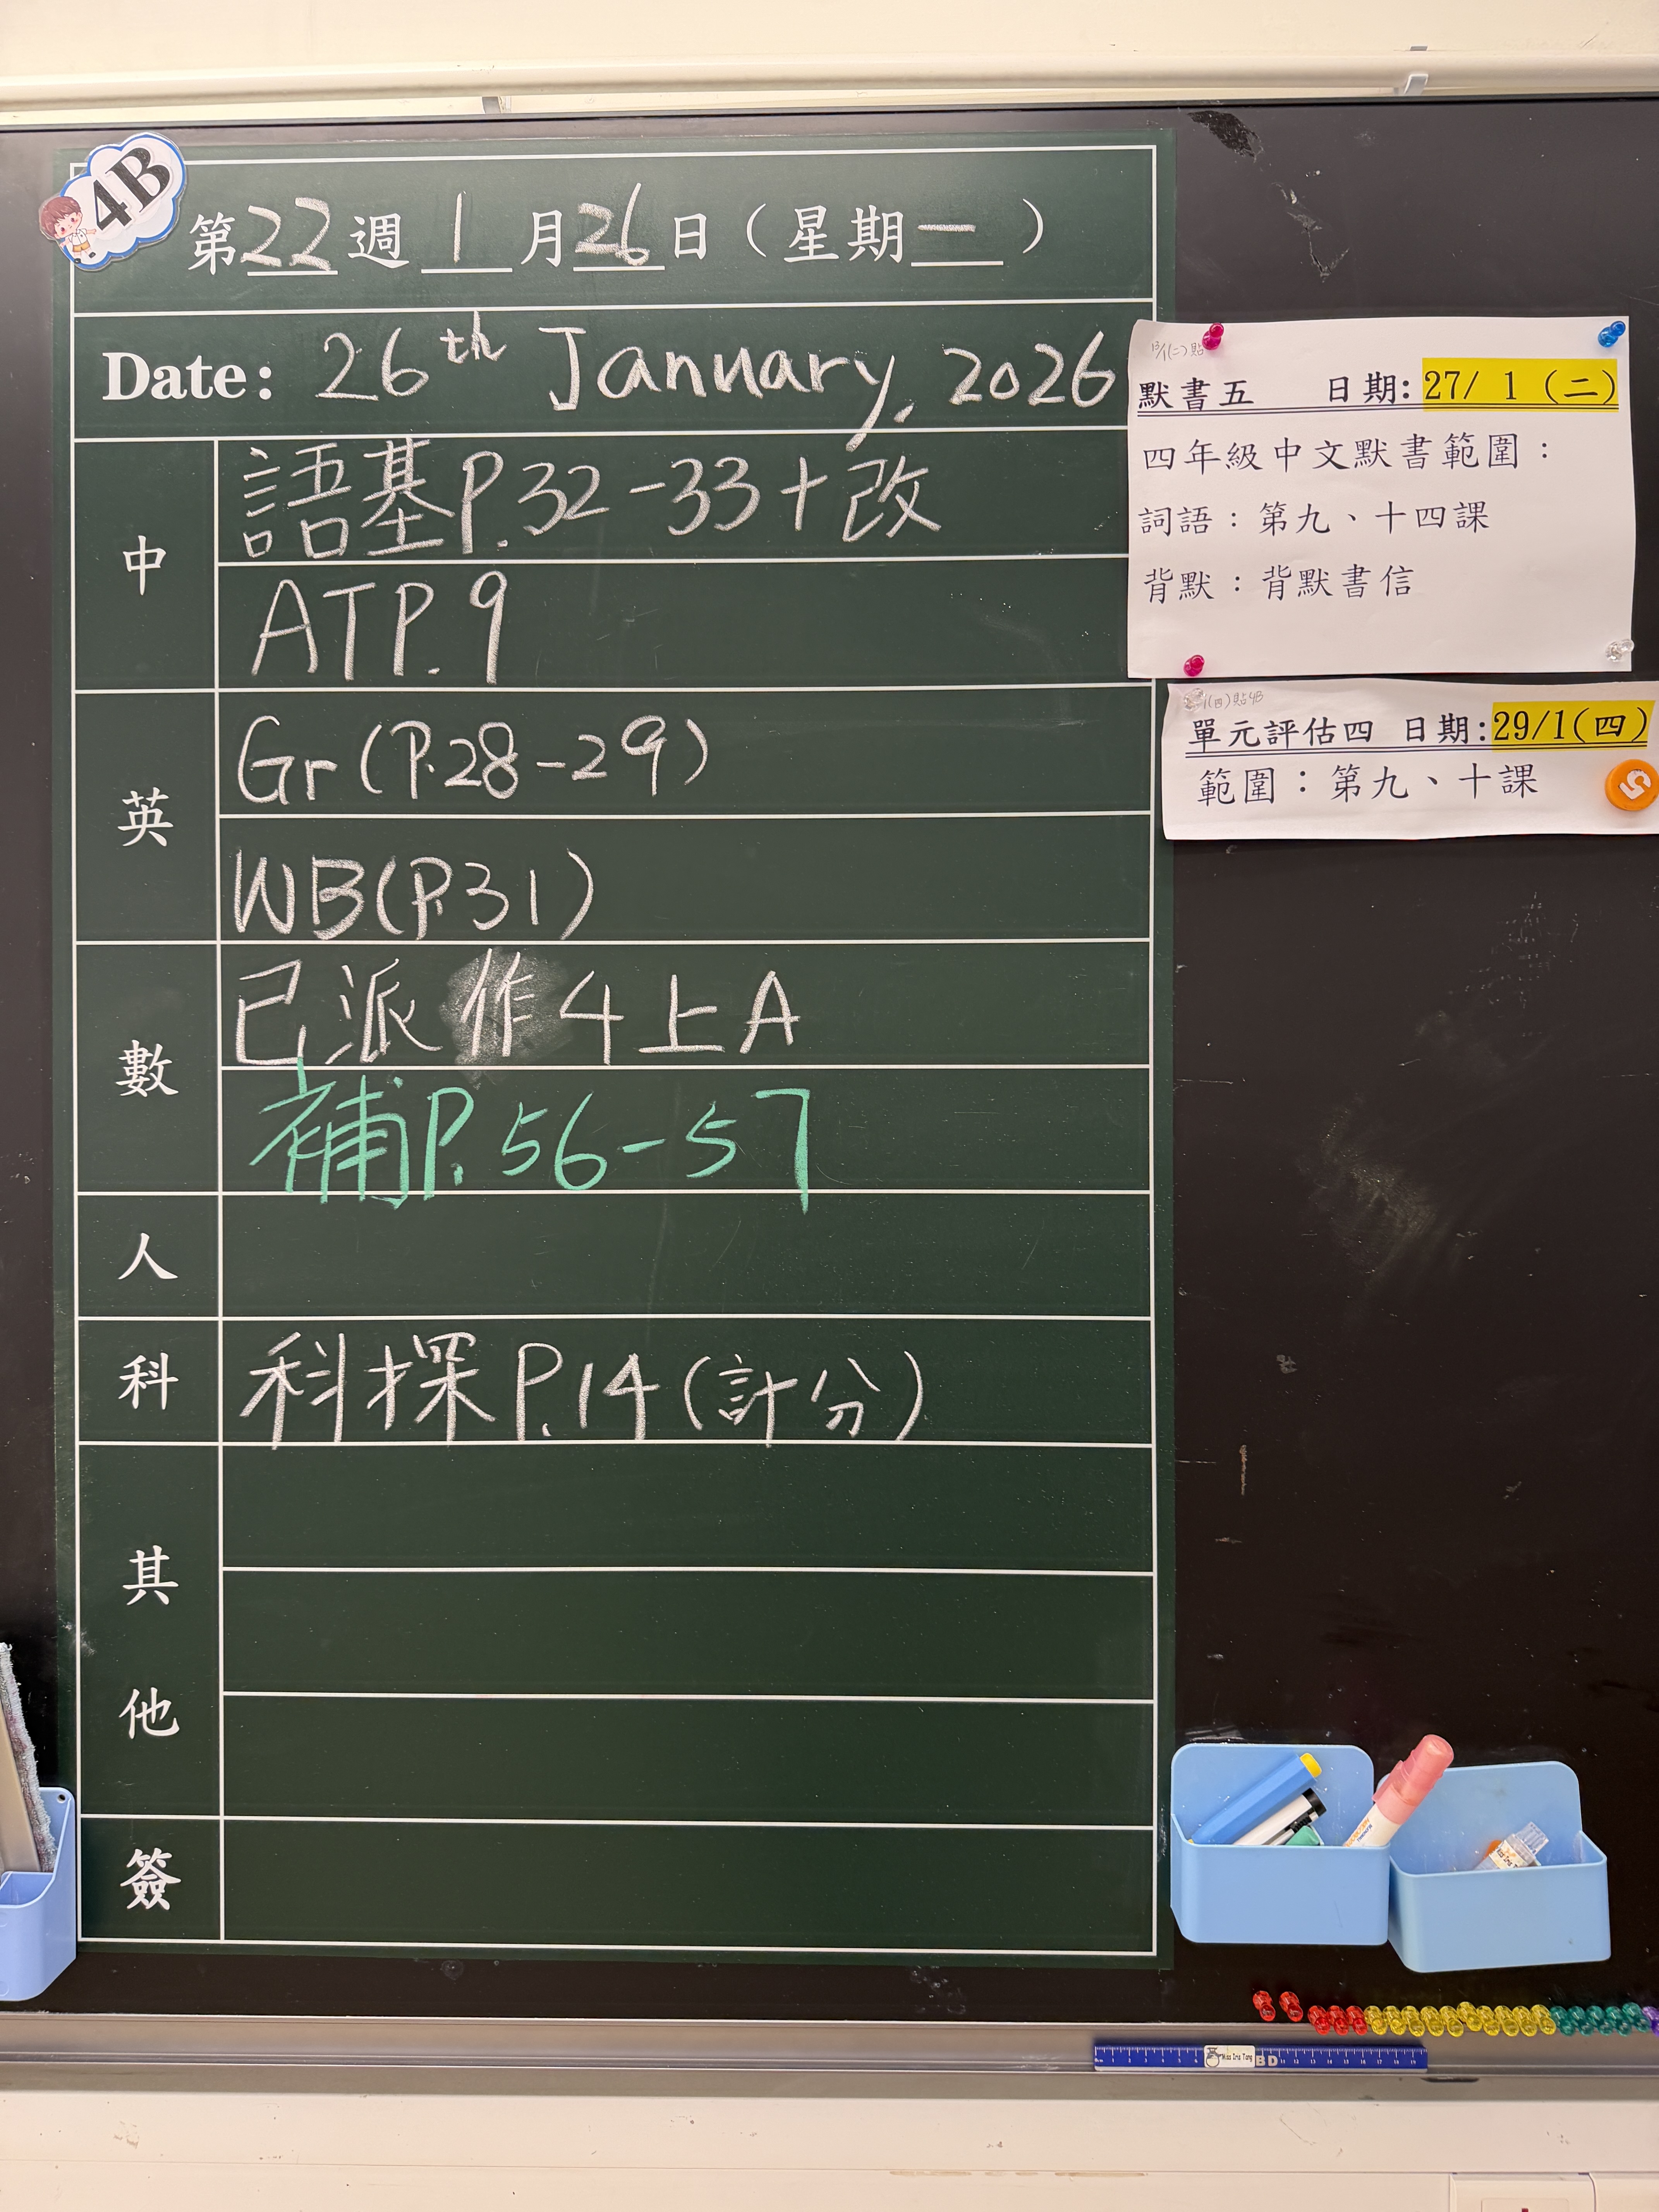 4B
第22週 1月26日（星期二）
Date: 26th January, 2026
中
語基P.32-33+改
ATP.9
英
Gr(P.28-29)
WB(P.31)
數
已派 作4上A
補P.56-57
人
科
科探P.14(計分)
其他
簽
默書五 日期:27/ 1 (二)
四年級中文默書範圍：
詞語：第九、十四課
背默：背默書信
1(四)貼4B
單元評估四 日期:29/1(四)
範圍：第九、十課
5
Miss Iris Tang